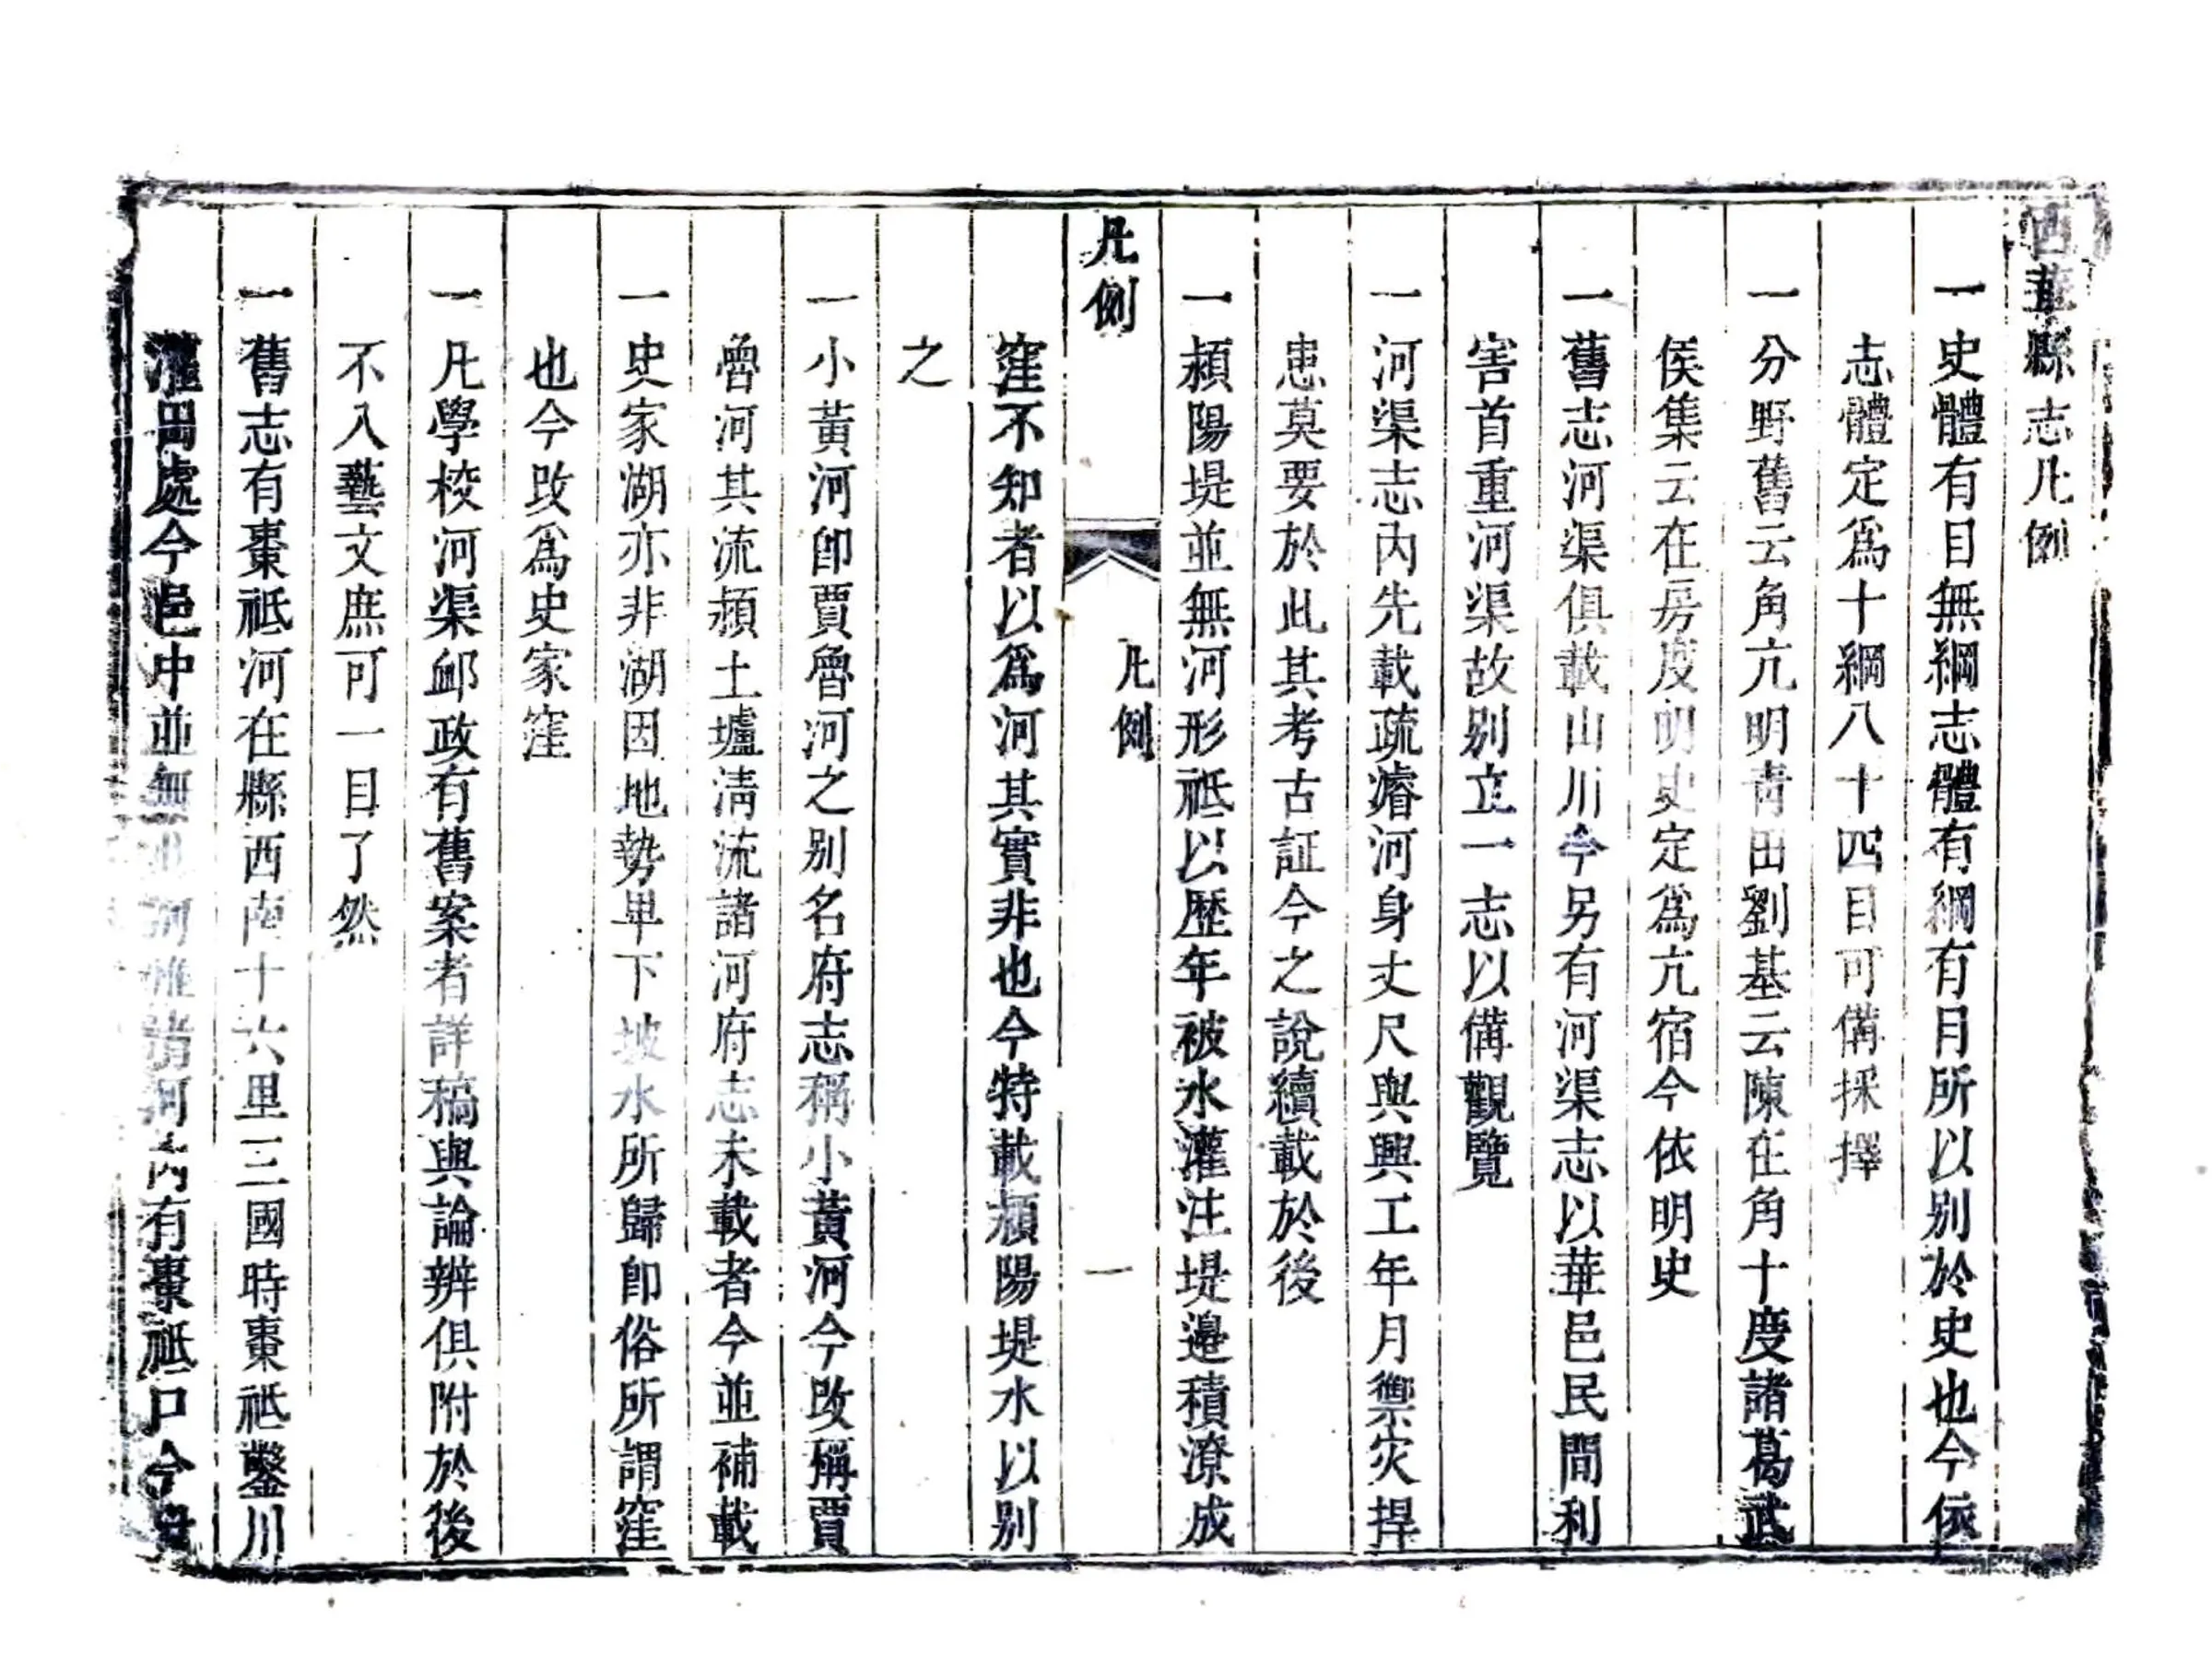 西華縣志凡例
一史體有目無綱志體有綱有目所以别於史也今依
志體定爲十綱八十四目可備採擇
一分野舊云角亢明青田劉基云陳在角十度諸葛武
侯集云在房度明史定爲亢宿今依明史
一舊志河渠俱載山川今另有河渠志以華邑民間利
害首重河渠故别立一志以備觀覽
一河渠志内先載疏濬河身丈尺與興工年月禦灾捍
患莫要於此其考古証今之說續載於後
一潁陽堤並無河形祗以歷年被水灌注堤邉積潦成
凡例
凡例
一
窪不知者以爲河其實非也今特載潁陽堤水以别
之
一小黃河卽賈魯河之别名府志稱小黃河今改稱賈
魯河其流潁土壚清流諸河府志未載者今並補載
一史家湖亦非湖因地勢卑下坡水所歸卽俗所謂窪
也今改爲史家窪
一凡學校河渠邮政有舊案者詳稿與論辨俱附於後
不入藝文庶可一目了然
一舊志有棗祗河在縣西南十六里三國時棗祗鑿川
灌田處今邑中並無此河惟諸河内有棗祗口今